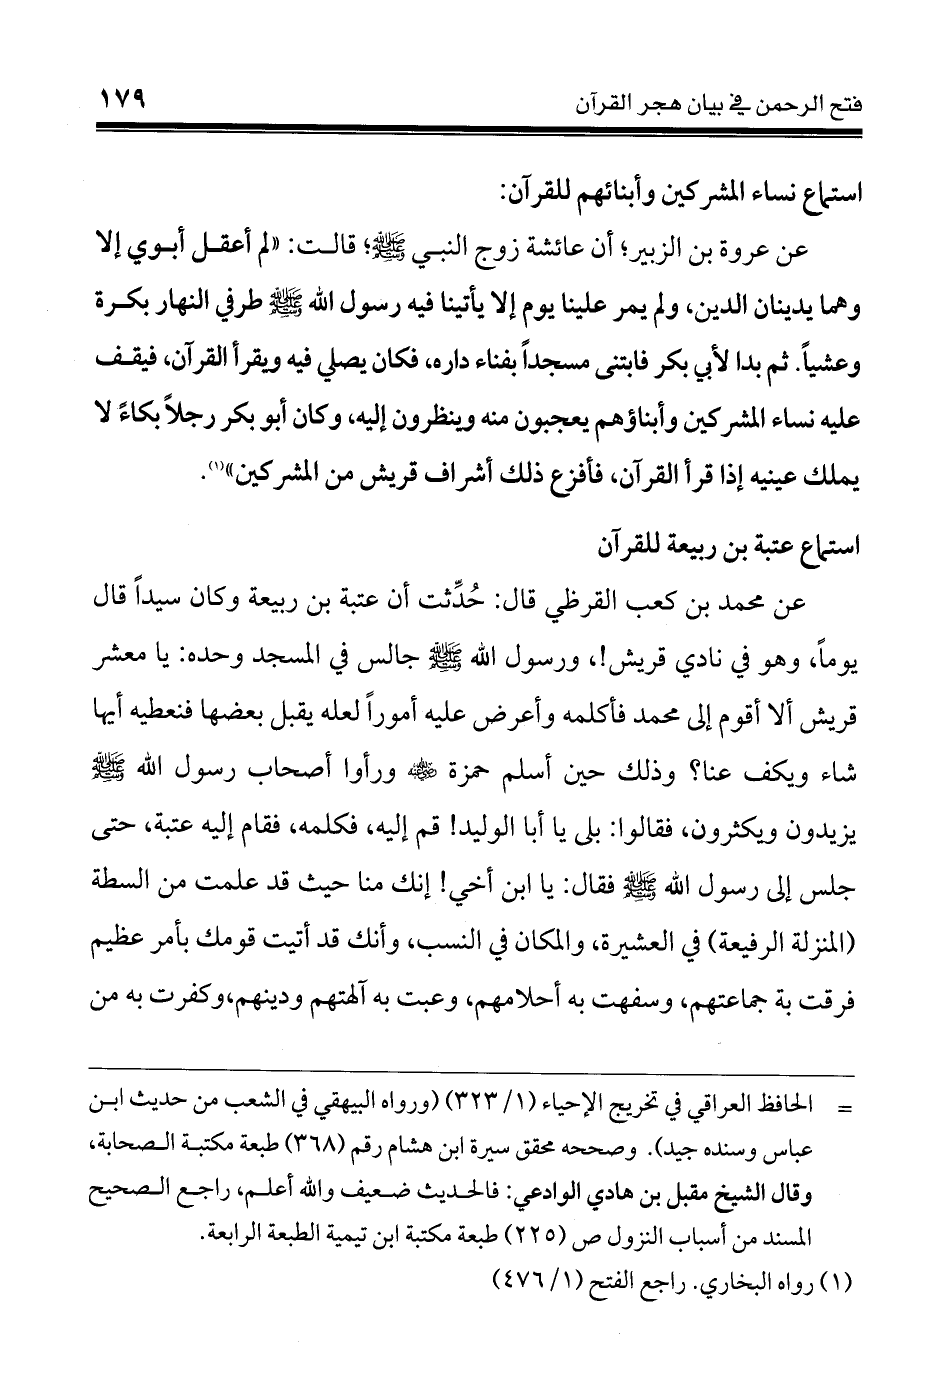 فتح الرحمن في بيان هجر القرآن ١٧٩
استماع نساء المشركين وأبنائهم للقرآن:
عن عروة بن الزبير؛ أن عائشة زوج النبي ﷺ؛ قالت: «لم أعقل أبوي إلا
وهما يدينان الدين، ولم يمر علينا يوم إلا يأتينا فيه رسول الله ﷺ طرفي النهار بكرة
وعشياً. ثم بدا لأبي بكر فابتنى مسجداً بفناء داره، فكان يصلي فيه ويقرأ القرآن، فيقف
عليه نساء المشركين وأبناؤهم يعجبون منه وينظرون إليه، وكان أبو بكر رجلاً بكاءً لا
يملك عينيه إذا قرأ القرآن، فأفزع ذلك أشراف قريش من المشركين»(١).
استماع عتبة بن ربيعة للقرآن
عن محمد بن كعب القرظي قال: حُدِّثت أن عتبة بن ربيعة وكان سيداً قال
يوماً، وهو في نادي قريش!، ورسول الله ﷺ جالس في المسجد وحده: يا معشر
قريش ألا أقوم إلى محمد فأكلمه وأعرض عليه أموراً لعله يقبل بعضها فنعطيه أيها
شاء ويكف عنا؟ وذلك حين أسلم حمزة رضي الله عنه ورأوا أصحاب رسول الله ﷺ
يزيدون ويكثرون، فقالوا: بلى يا أبا الوليد! قم إليه، فكلمه، فقام إليه عتبة، حتى
جلس إلى رسول الله ﷺ فقال: يا ابن أخي! إنك منا حيث قد علمت من السطة
(المنزلة الرفيعة) في العشيرة، والمكان في النسب، وأنك قد أتيت قومك بأمر عظيم
فرقت بة جماعتهم، وسفهت به أحلامهم، وعبت به آلهتهم ودينهم،وكفرت به من
= الحافظ العراقي في تخريج الإحياء (١/ ٣٢٣) (ورواه البيهقي في الشعب من حديث ابن
عباس وسنده جيد). وصححه محقق سيرة ابن هشام رقم (٣٦٨) طبعة مكتبة الصحابة،
وقال الشيخ مقبل بن هادي الوادعي: فالحديث ضعيف والله أعلم، راجع الصحيح
المسند من أسباب النزول ص (٢٢٥) طبعة مكتبة ابن تيمية الطبعة الرابعة.
(١) رواه البخاري. راجع الفتح (١/ ٤٧٦)